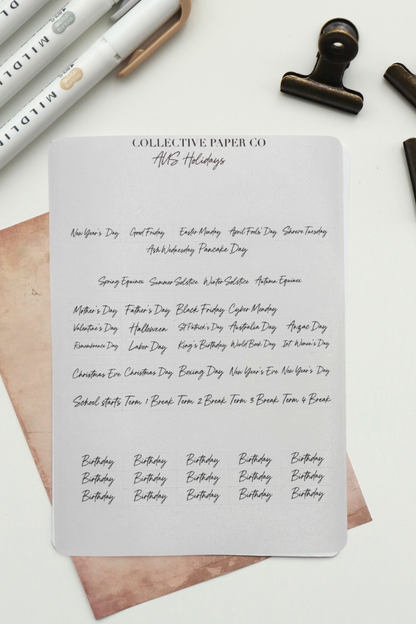 MILDLI
MILDLIN
MILDLIN
COLLECTIVE PAPER CO
AUS Holidays
New Year's Day Good Friday Easter Monday April Fools' Day Shrove Tuesday
Ash Wednesday Pancake Day
Spring Equinox Summer Solstice Winter Solstice Autumn Equinox
Mother's Day Father's Day Black Friday Cyber Monday
Valentine's Day Halloween St Patrick's Day Australia Day Anzac Day
Remembrance Day Labor Day King's Birthday World Book Day Int. Women's Day
Christmas Eve Christmas Day Boxing Day New Year's Eve New Year's Day
School starts Term 1 Break Term 2 Break Term 3 Break Term 4 Break
Birthday Birthday Birthday Birthday Birthday
Birthday Birthday Birthday Birthday Birthday
Birthday Birthday Birthday Birthday Birthday